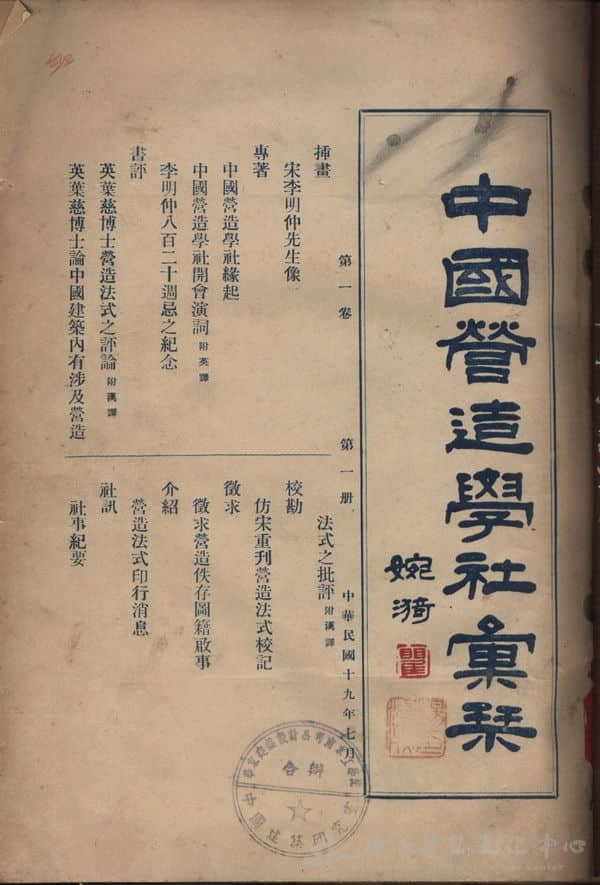 中國營造學社彙栞
婉漪
第一卷 第一册 中華民國十九年七月
插畫
宋李明仲先生像
專著
中國營造學社緣起
中國營造學社開會演詞 附英譯
李明仲八百二十週忌之紀念
書評
英葉慈博士營造法式之評論 附漢譯
英葉慈博士論中國建築內有涉及營造
法式之批評 附漢譯
校勘
仿宋重刊營造法式校記
徵求
徵求營造佚存圖籍啟事
介紹
營造法式印行消息
社訊
社事紀要
合辦